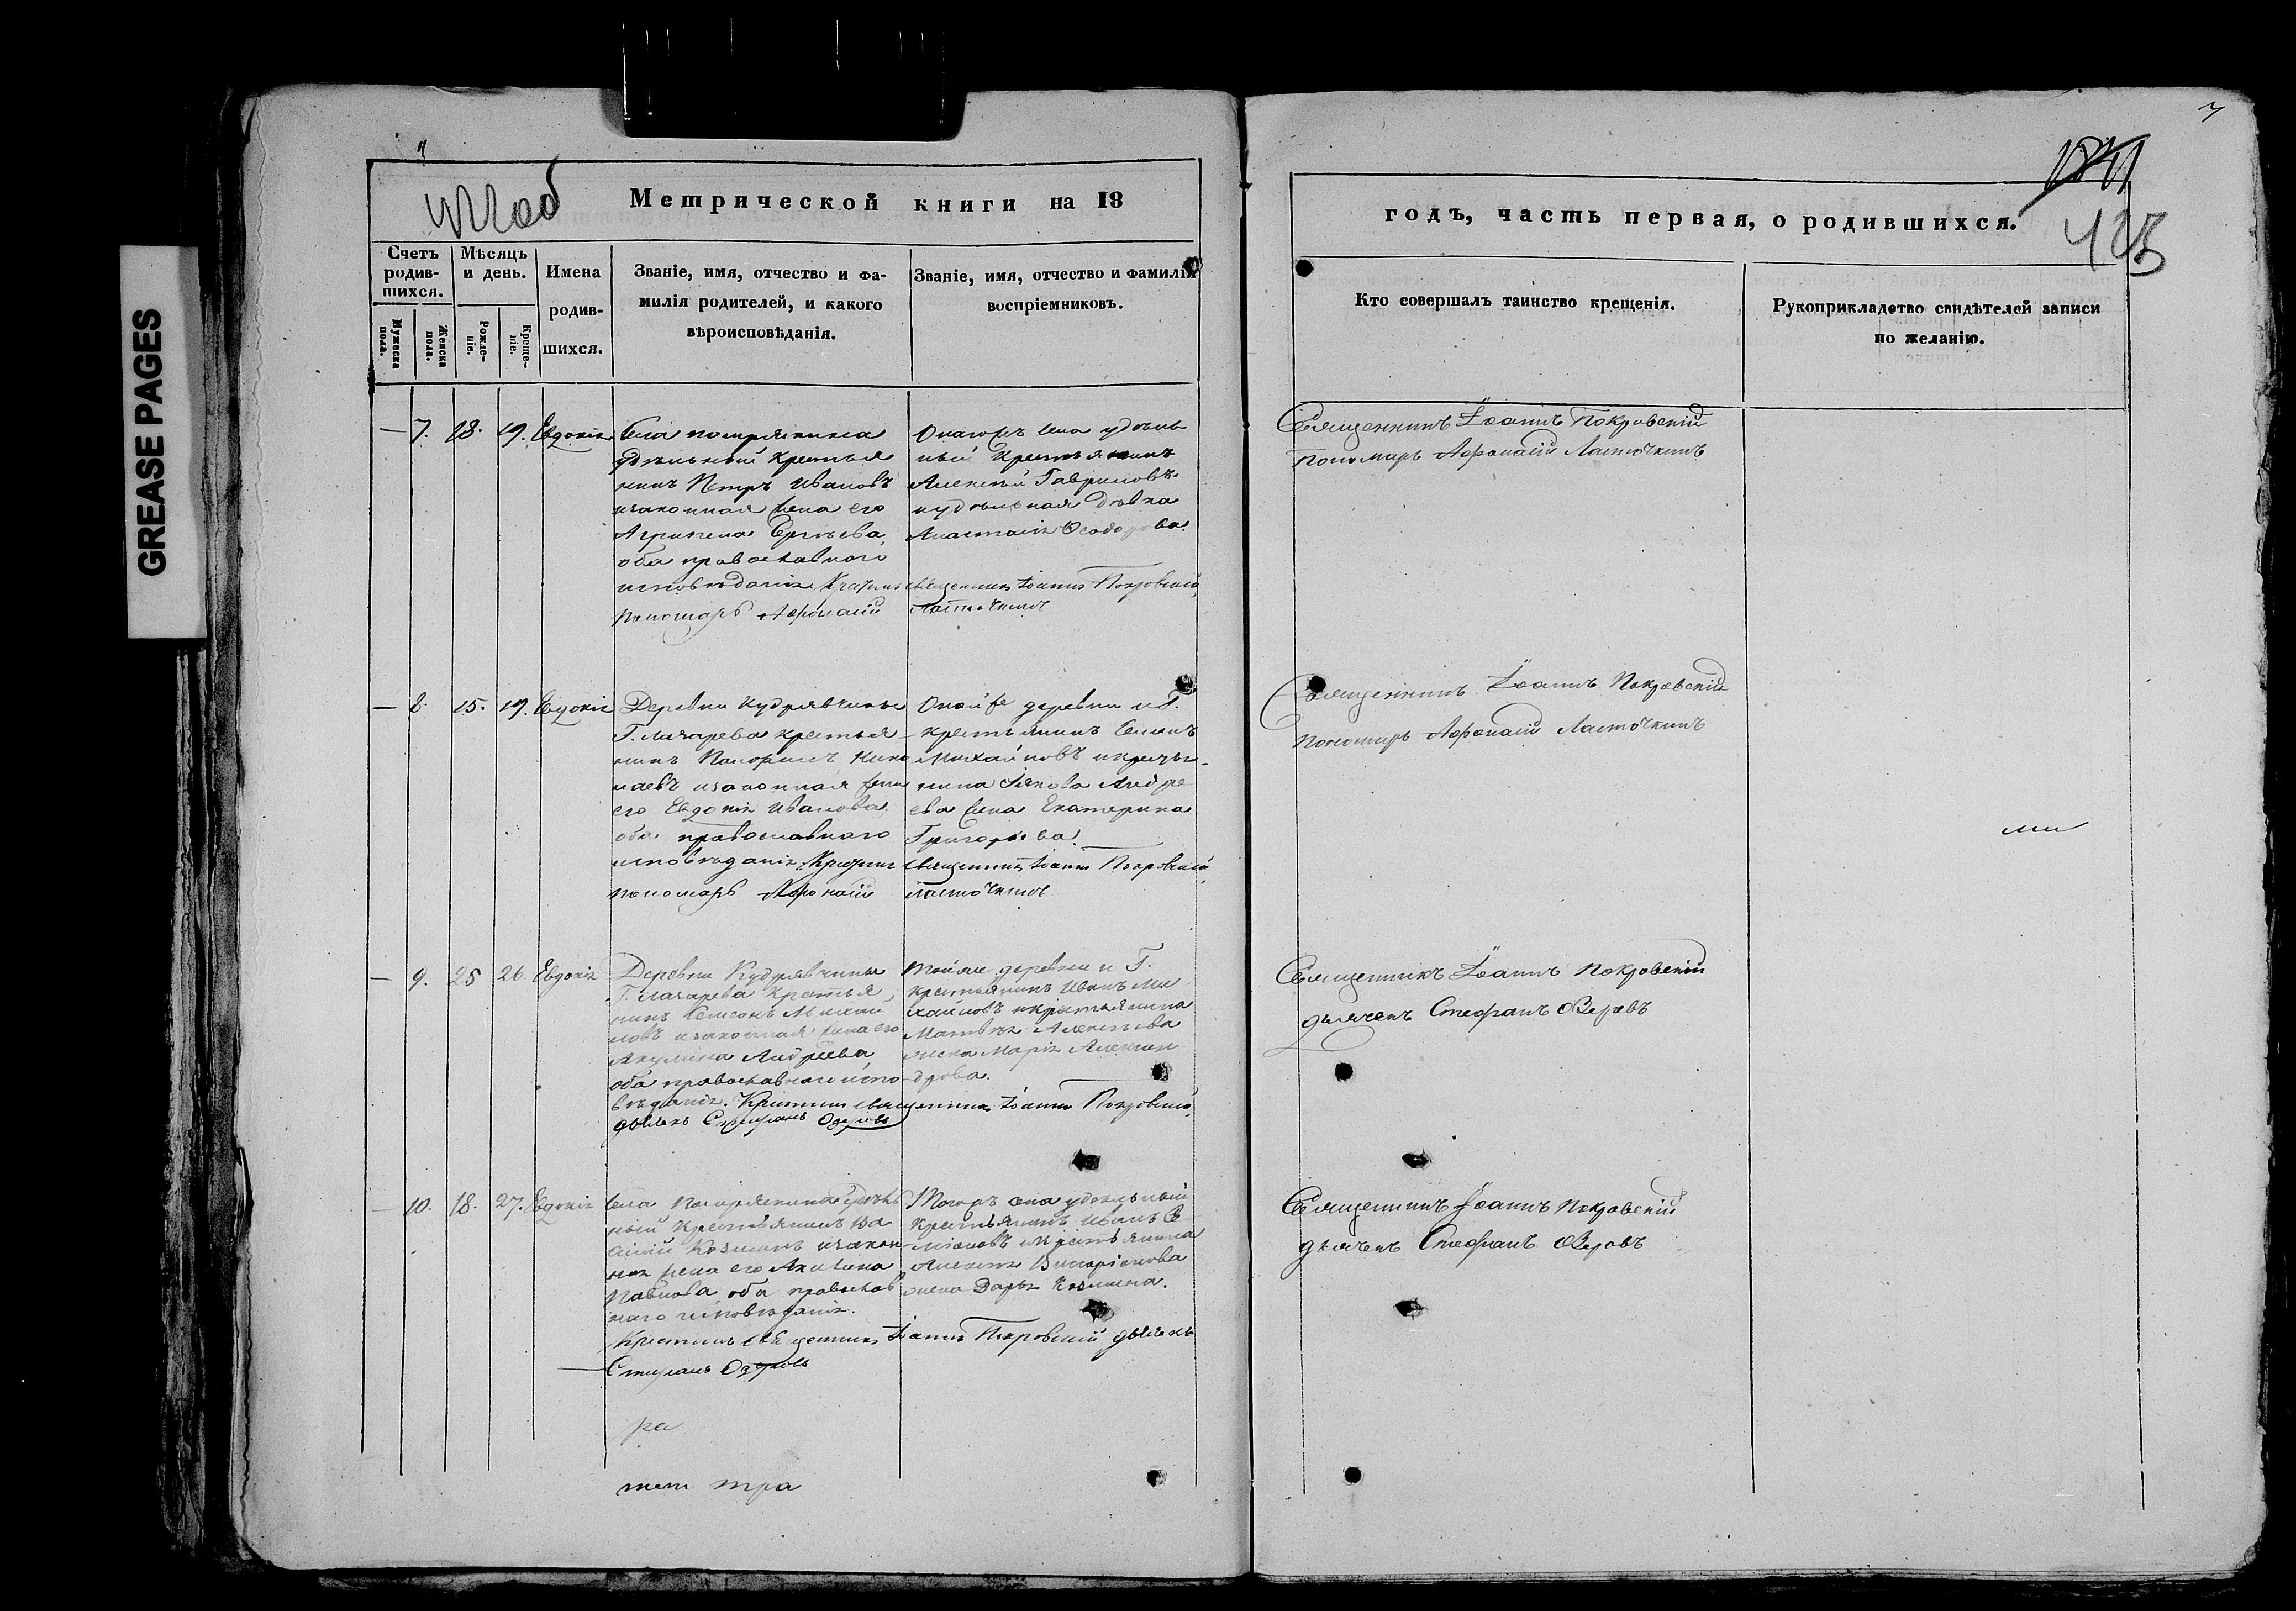 GREASE PAGES
7
об
Метрической книги на 18
Счетъ родив-шихся.
Мужеска пола.
Женска пола.
Мѣсяцъ и день.
Рожде-ніе.
Креще-ніе.
Имена
родив-
шихся.
Званіе, имя, отчество и фа-
милія родителей, и какого
вѣроисповѣданія.
Званіе, имя, отчество и фамилія
воспріемниковъ.
7. 18. 19. Евдокія
Села
удѣльный крестья
нинъ Петръ Ивановъ
изаконная жена его
Агрипена Сергѣева
оба православнаго
исповѣданія. Крестилъ священникъ Іоаннъ Покровскій,
пономарь Афонасій Ласточкинъ
Онагожъ села удѣль
ный крестьянинъ
Алексѣй Гавриловъ
иудѣльная дѣвка
Анастасія Ѳеодорова.
8. 15. 19. Евдокія
Деревни Кудрявчины
Г. Лазарева крестья
нинъ Никол
аевъ изаконная жена
его Евдокія Иванова.
оба православнаго
исповѣданія. Крестилъ священникъ Іоаннъ Покровскій,
пономарь Афонасій Ласточкинъ
Онойже деревни и Г.
крестьянинъ Семенъ
Михайловъ икресть-
янина Якова Андре
ева жена Екатерина
Григорьева.
9. 25 26 Евдокія
Деревни Кудрявчины
Г. Лазарева крестья
нинъ Семенъ Михай
ловъ изаконная жена его
Акулина Андреева,
оба православнаго испо-
вѣданія. Крестилъ священникъ Іоаннъ Покровскій,
дьячекъ Стефанъ Озеровъ
Тойже деревни и Г.
крестьянинъ Иванъ Ми
хайловъ икрестьянина
Матвѣя Алексѣева
жена Марія Алексан
дрова.
10. 18. 27. Евдокія
Села удѣль
ный крестьянинъ Ва
силій Козминъ изакон
ная жена его Акилина
Павлова оба православ
наго исповѣданія.
Крестилъ священникъ Іоаннъ Покровскій дьячекъ
Стефанъ Озеровъ
Тогожъ села удѣльный
крестьянинъ Иванъ Се
меновъ икрестьянина
Алексѣя Виссаріонова
жена Дарья Козмина.
ра
тет тра
7
годъ, часть первая, о родившихся.
Кто совершалъ таинство крещенія.
Рукоприкладство свидѣтелей записи
по желанію.
Священникъ Іоаннъ Покровскій
Пономарь Афонасій Ласточкинъ
Священникъ Іоаннъ Покровскій
Пономарь Афонасій Ласточкинъ
Священникъ Іоаннъ Покровскій
дьячекъ Стефанъ Озеровъ
Священникъ Іоаннъ Покровскій
дьячекъ Стефанъ Озеровъ